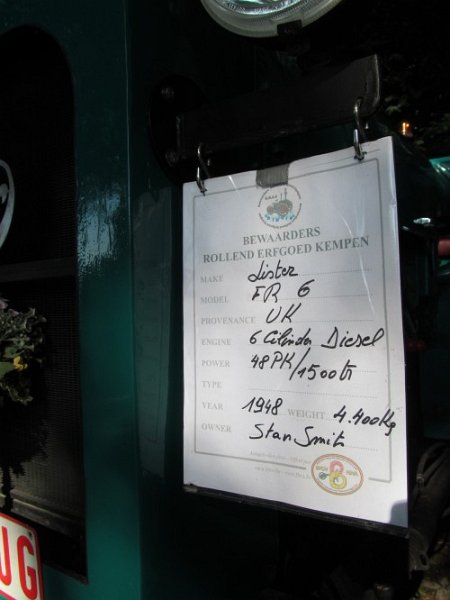 BEWAARDERS
ROLLEND ERFGOED KEMPEN
MAKE Lister
MODEL FR 6
PROVENANCE UK
ENGINE 6 Cilinder Diesel
POWER 48PK/1500tr
TYPE
YEAR 1948 WEIGHT 4.400Kg
OWNER Stan Smith
UG